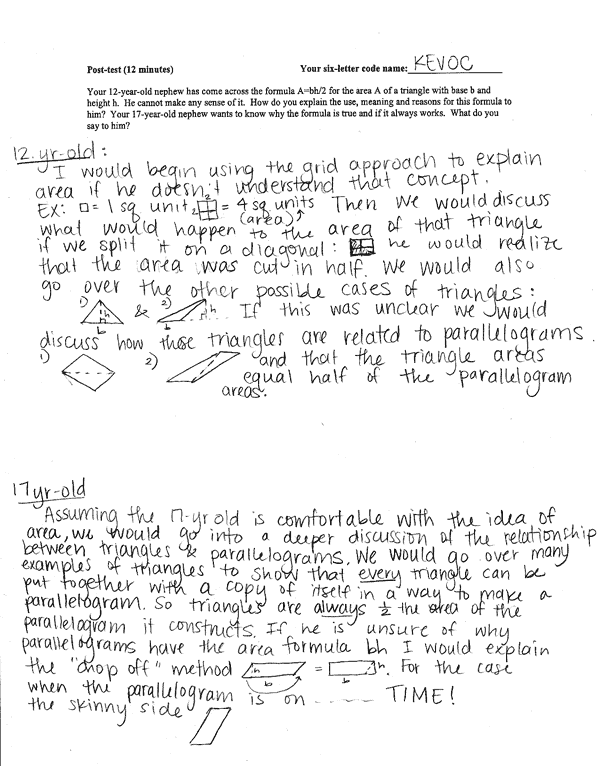 Post-test (12 minutes) Your six-letter code name: KEVOC
Your 12-year-old nephew has come across the formula A=bh/2 for the area A of a triangle with base b and
height h. He cannot make any sense of it. How do you explain the use, meaning and reasons for this formula to
him? Your 17-year-old nephew wants to know why the formula is true and if it always works. What do you
say to him?
12. yr-old:
I would begin using the grid approach to explain
area if he doesn't understand that concept.
EX: □ = 1 sq unit, 2 2 = 4 sq units Then we would discuss
(area)
what would happen to the area of that triangle
if we split it on a diagonal: he would realize
that the area was cut in half. We would also
go over the other possible cases of triangles:
1) h b & 2) h b . If this was unclear we would
discuss how those triangles are related to parallelograms.
1) 2) and that the triangle areas
equal half of the parallelogram
areas.
17 yr-old
Assuming the 17-yr old is comfortable with the idea of
area, we would go into a deeper discussion of the relationship
between triangles & parallelograms. We would go over many
examples of triangles to show that every triangle can be
put together with a copy of itself in a way to make a
parallelogram. So triangles are always ½ the area of the
parallelogram it constructs. If he is unsure of why
parallelograms have the area formula bh I would explain
the "chop off" method h b = h. b For the case
when the parallelogram is on ---- TIME!
the skinny side